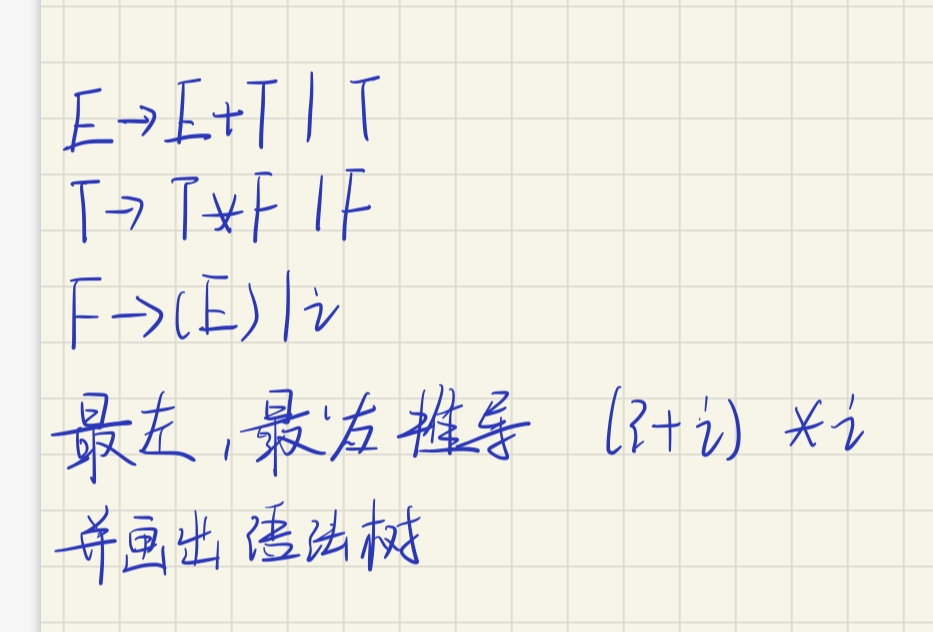 E→E+T | T
T→T*F | F
F→(E) | i
最左,最右推导 (i+i) * i
并画出语法树